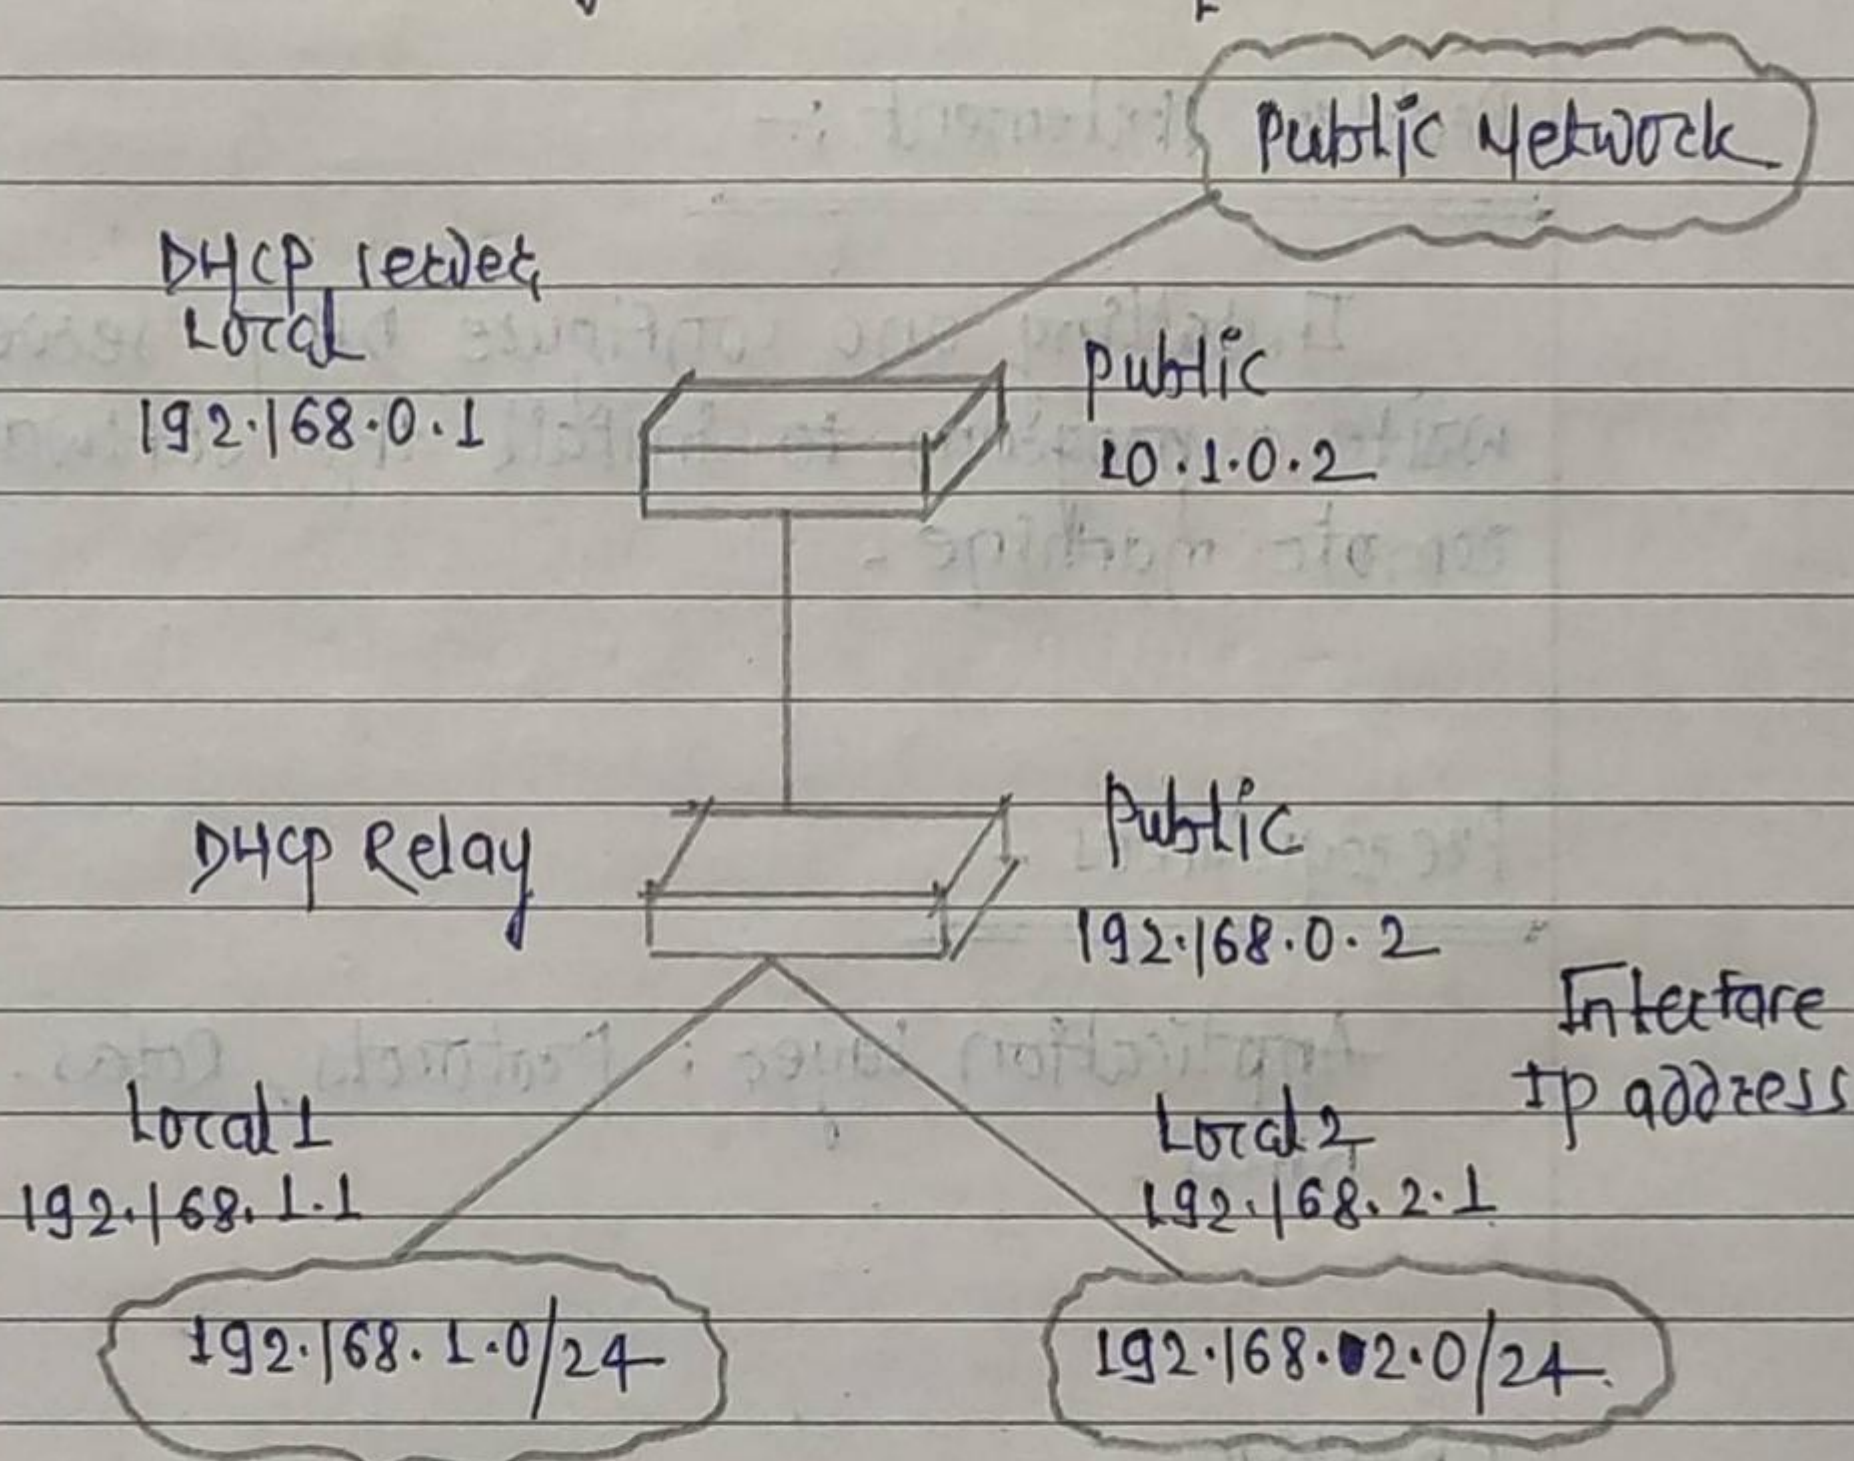 Public Network
DHCP server
Local
192.168.0.1
Public
10.1.0.2
DHCP Relay
Public
192.168.0.2
Interface
Ip address
Local 1
192.168.1.1
Local 2
192.168.2.1
192.168.1.0/24
192.168.2.0/24